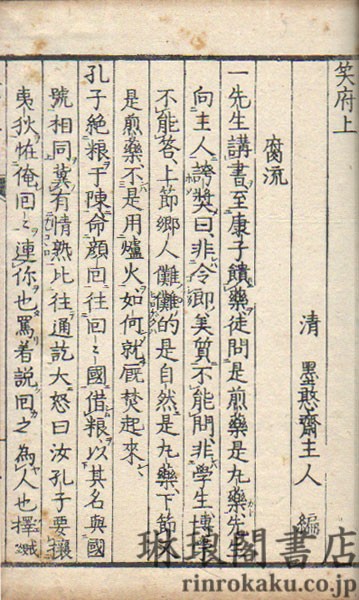 笑府上
清 墨憨齋主人 編
腐流
一先生講書至康子饋藥徒問是煎藥是丸藥先生
向主人誇奬曰非令郎美質不能問非學生博學
不能答上節鄉人儺儺的是自然是丸藥下節又
是煎藥不是用爐火如何就厩焚起來
孔子絶粮于陳命顔回往回々國借粮以其名與國
號相同冀有情熟比往通訖大怒曰汝孔子要攘
夷狄怪俺回々連你也罵着説回之為人也擇賊
琳琅閣書店
rinrokaku.co.jp